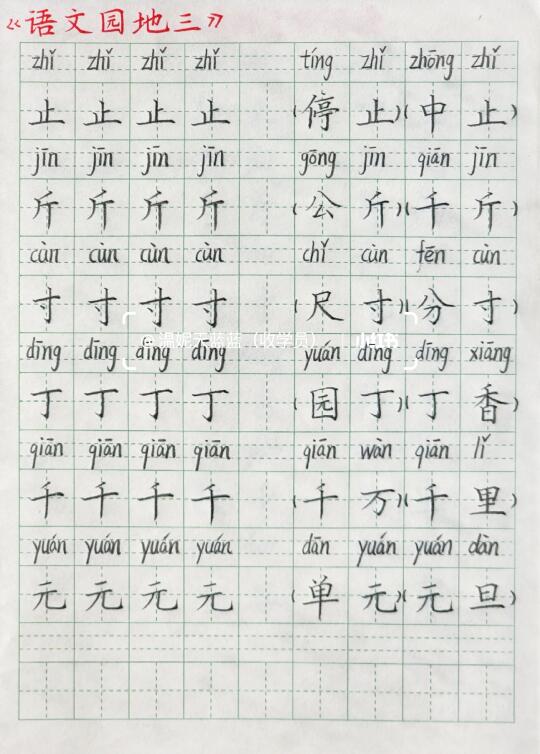 《语文园地三》
zhǐ zhǐ zhǐ zhǐ tíng zhǐ zhōng zhǐ
止 止 止 止 (停 止)(中 止)
jīn jīn jīn jīn gōng jīn qiān jīn
斤 斤 斤 斤 (公 斤)(千 斤)
cùn cùn cùn cùn chǐ cùn fēn cùn
寸 寸 寸 寸 (尺 寸)(分 寸)
@温妮天蓝蓝（收学员） 小红书
dīng dīng dīng dīng yuán dīng dīng xiāng
丁 丁 丁 丁 (园 丁)(丁 香)
qiān qiān qiān qiān qiān wàn qiān lǐ
千 千 千 千 (千 万)(千 里)
yuán yuán yuán yuán dān yuán yuán dàn
元 元 元 元 (单 元)(元 旦)